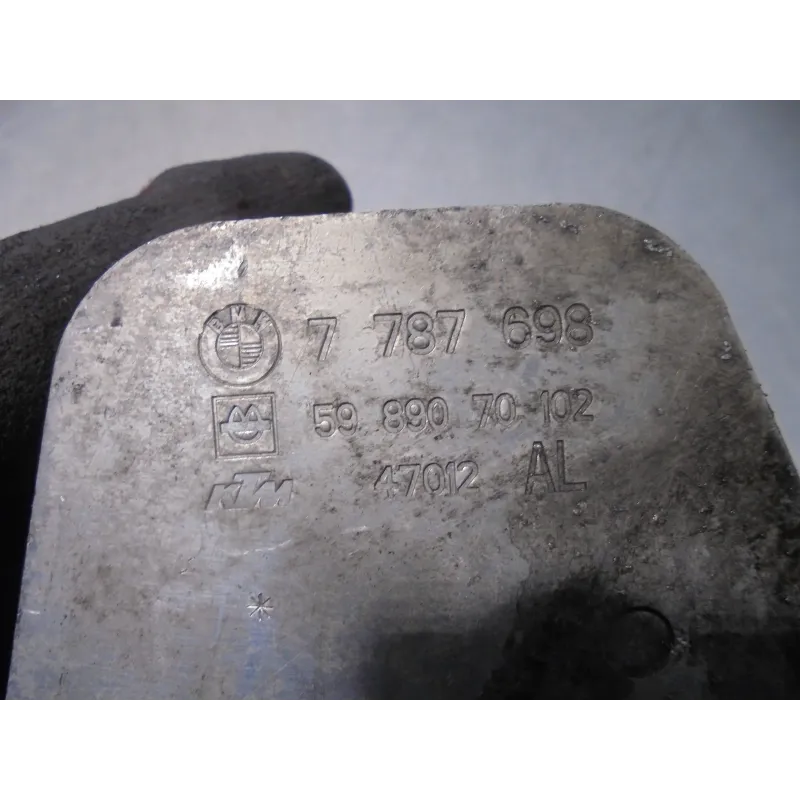 BMW 7 787 698
59 890 70-102
KTM 47012 AL